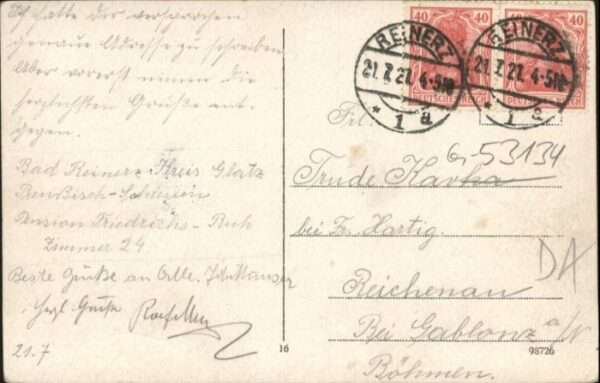 Ich hatte Dir versprochen
genaue Adresse zu schreiben
Aber vorerst nimm die
herzlichsten Grüße ent-
gegen.
Bad Reinerz Kreis Glatz
Preußisch-Schlesien
Pension Friedrichs-Ruh
Zimmer 24
Beste Grüße an Alle
Herzl. Grüße
21.7
40 40 40
DEUTSCHES REICH
REINERZ REINERZ
21.7.21. 4-5N 21.7.21. 4-5N
* 1 a * 1 a
Frl.
G-53134
Trude
bei Fr. Hartig.
DA
Reichenau
Bei Gablonz a/N
Böhmen.
16
98726